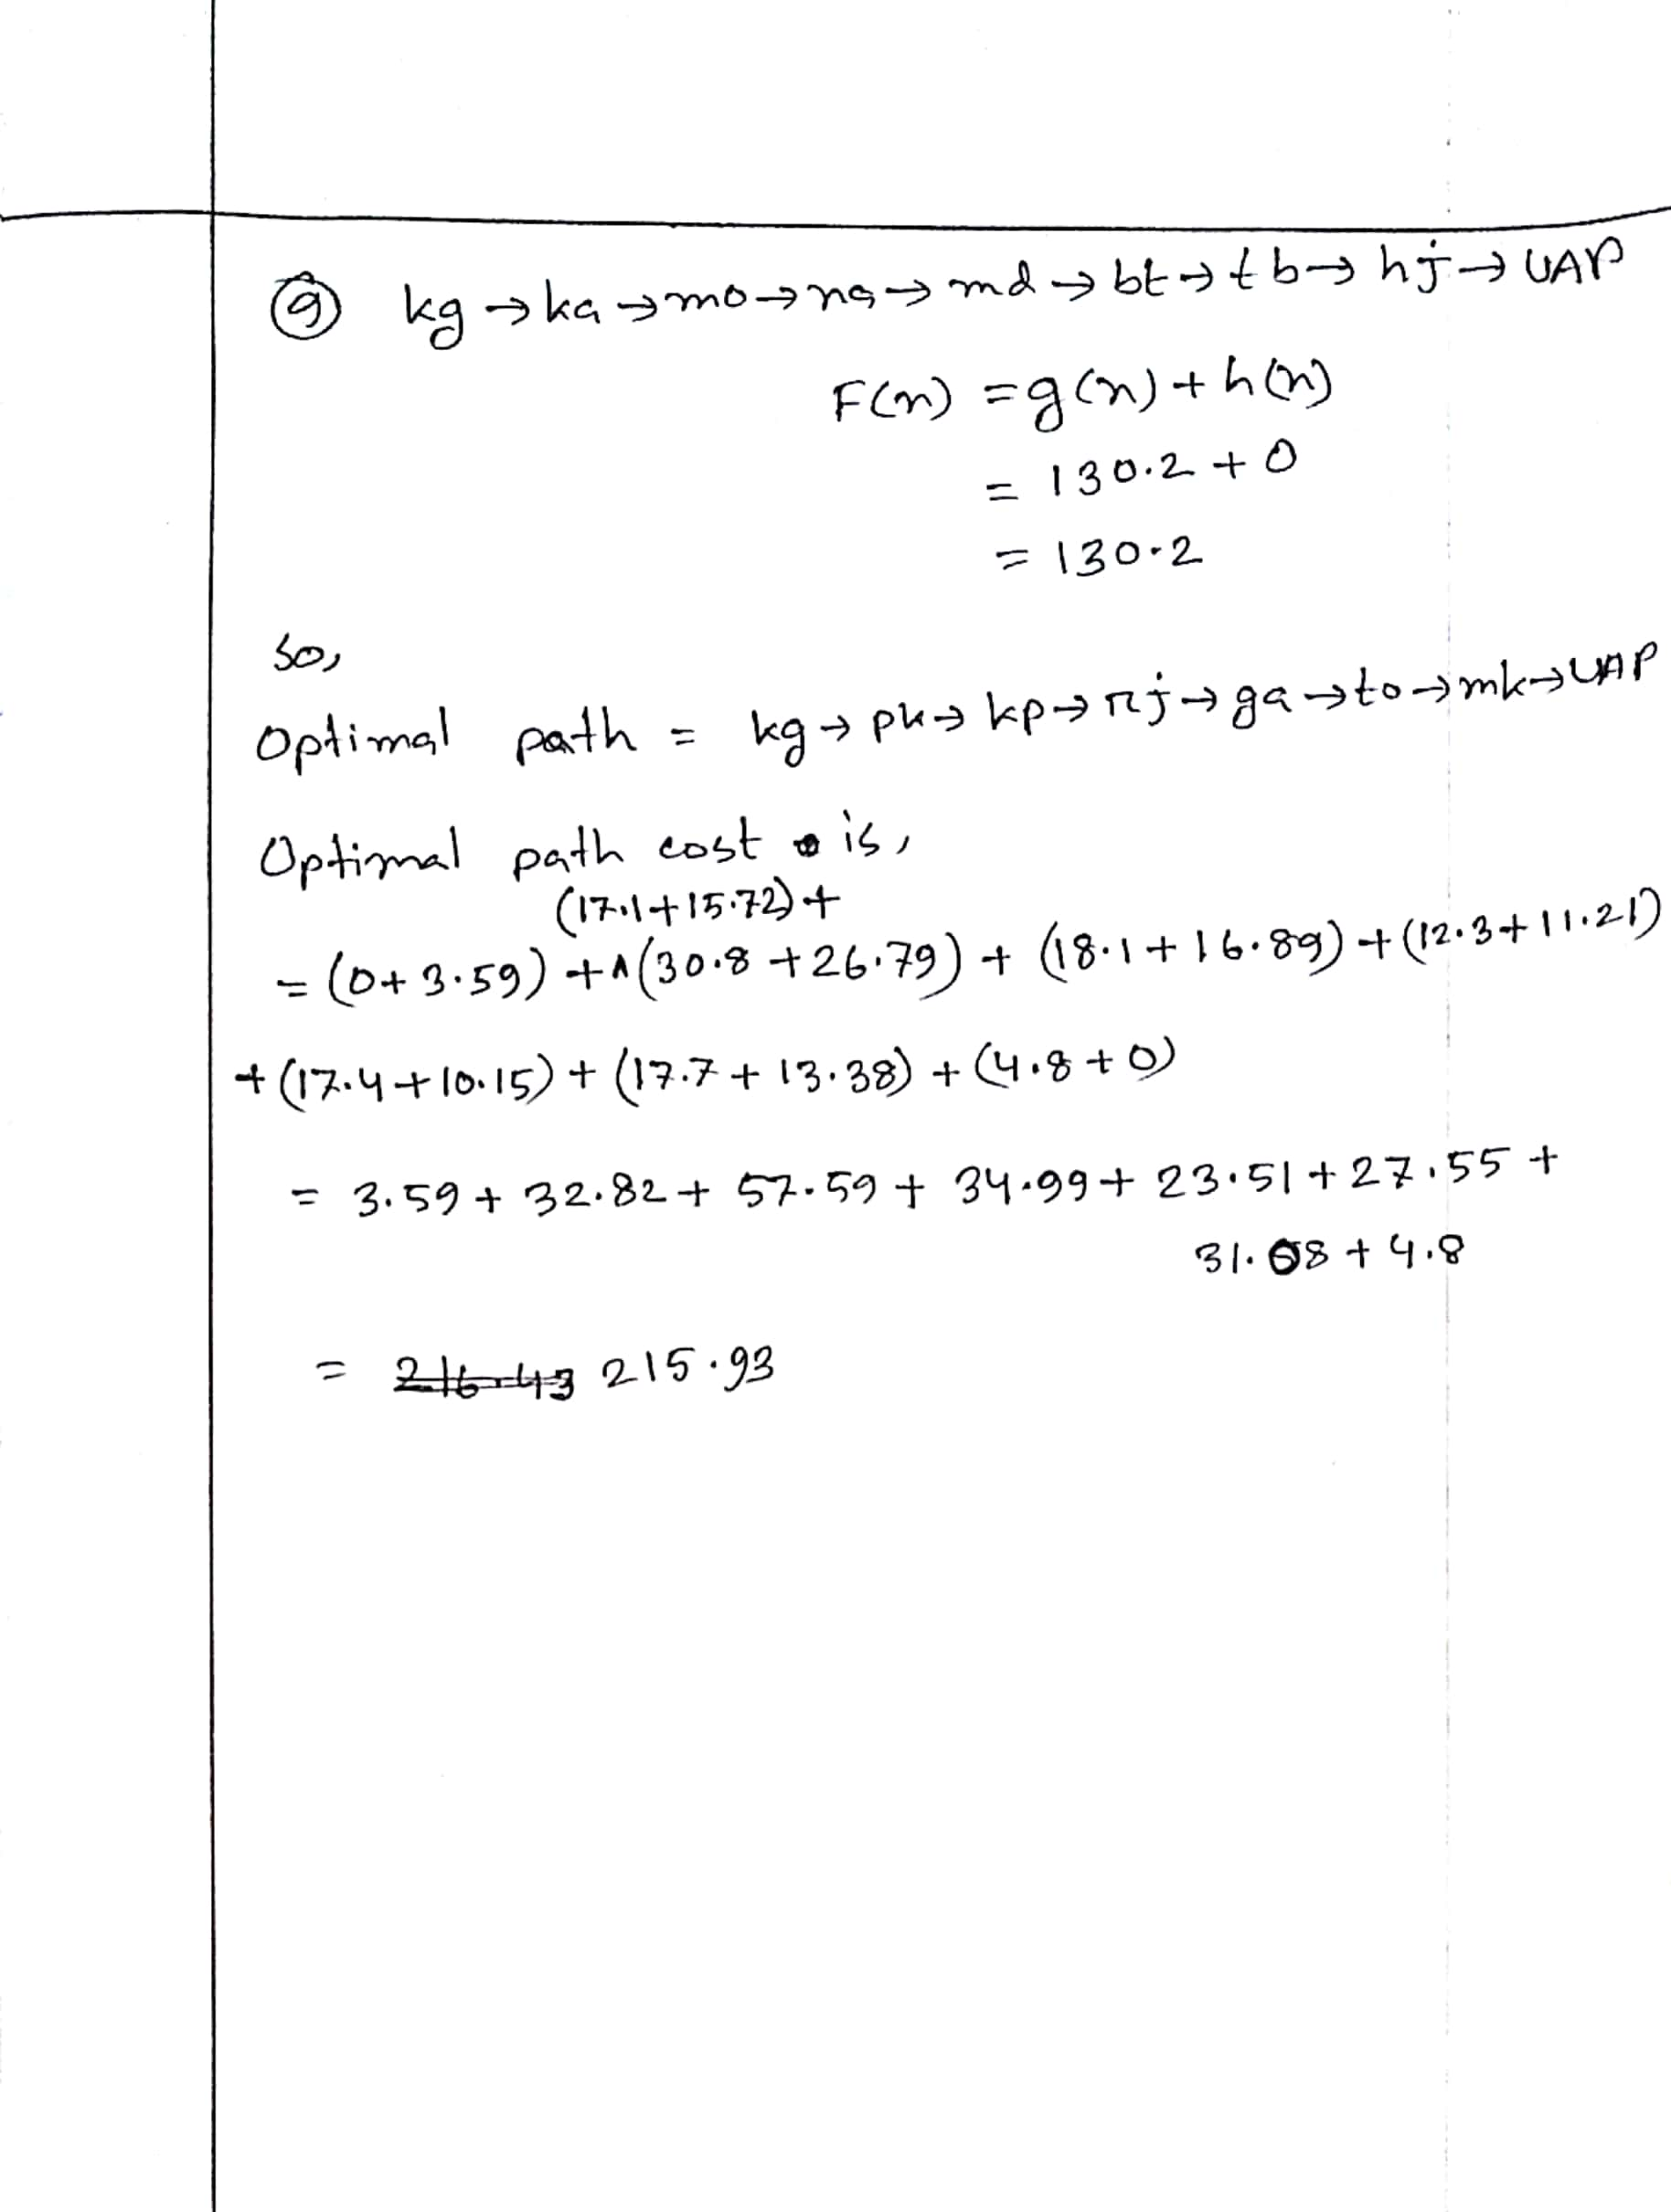 ⑨ kg → ka → mo → na → md → bt → tb → hj → UAP
F(n) = g(n) + h(n)
= 130.2 + 0
= 130.2
So,
Optimal path = kg → pk → kp → rj → ga → to → mk → UAP
Optimal path cost is,
(17.1+15.72)+
= (0+3.59) +∧(30.8+26.79) + (18.1+16.89) + (12.3+11.21)
+ (17.4+10.15) + (17.7+13.38) + (4.8+0)
= 3.59 + 32.82 + 57.59 + 34.99 + 23.51 + 27.55 +
31.08 + 4.8
= 216.43 215.93